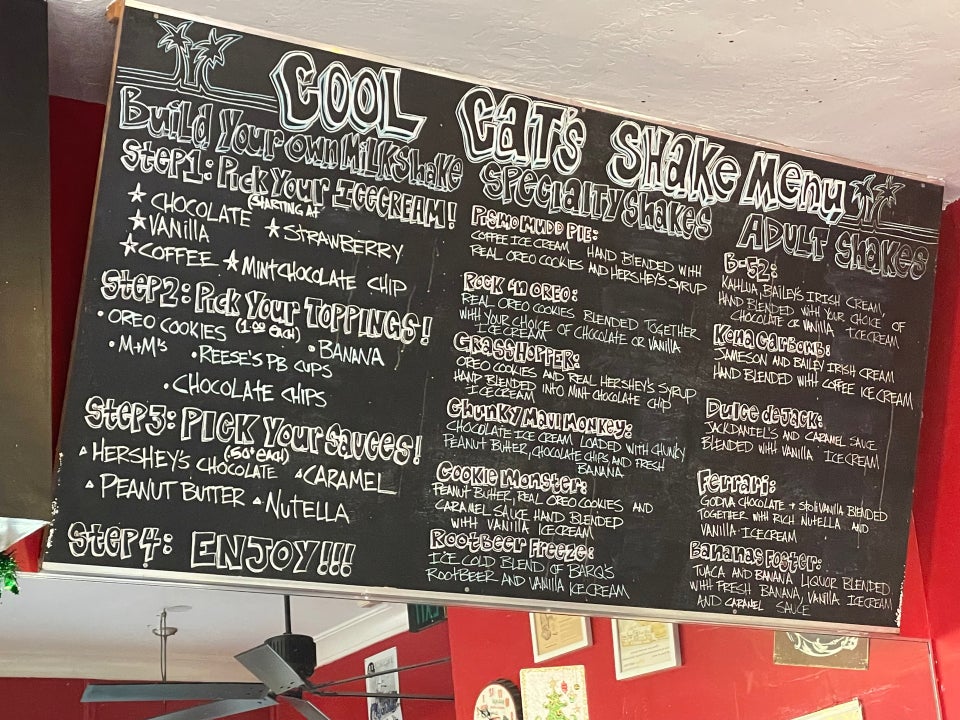 COOL CAT'S SHAKE MENU
Build Your Own Milkshake
Step 1: Pick Your Icecream!
(STARTING AT
★ CHOCOLATE ★ STRAWBERRY
★ VANILLA
★ COFFEE ★ MINT CHOCOLATE CHIP
Step 2: Pick Your Toppings!
(1.00 EACH)
• OREO COOKIES • BANANA
• M+M's • REESE'S PB CUPS
• CHOCOLATE CHIPS
Step 3: Pick Your Sauces!
(50¢ EACH)
HERSHEY'S CHOCOLATE CARAMEL
PEANUT BUTTER NUTELLA
Step 4: ENJOY!!!
SPECIALTY SHAKES
PISMO MUDD PIE:
COFFEE ICE CREAM HAND BLENDED WITH
REAL OREO COOKIES AND HERSHEY'S SYRUP
ROCK 'N OREO:
REAL OREO COOKIES BLENDED TOGETHER
WITH YOUR CHOICE OF CHOCOLATE OR VANILLA
ICECREAM
GRASSHOPPER:
OREO COOKIES AND REAL HERSHEY'S SYRUP
HAND BLENDED INTO MINT CHOCOLATE CHIP
ICECREAM
CHUNKY MAUI MONKEY:
CHOCOLATE ICE CREAM LOADED WITH CHUNKY
PEANUT BUTTER, CHOCOLATE CHIPS AND FRESH
BANANA
COOKIE MONSTER:
PEANUT BUTTER, REAL OREO COOKIES AND
CARAMEL SAUCE HAND BLENDED
WITH VANILLA ICECREAM
ROOTBEER FREEZE:
ICE COLD BLEND OF BARQ'S
ROOTBEER AND VANILLA ICECREAM
ADULT SHAKES
B-52:
KAHLUA, BAILEY'S IRISH CREAM,
HAND BLENDED WITH YOUR CHOICE OF
CHOCOLATE OR VANILLA ICECREAM
KONA CARBOMB:
JAMESON AND BAILEY IRISH CREAM
HAND BLENDED WITH COFFEE ICE CREAM
DULCE DE JACK:
JACKDANIEL'S AND CARAMEL SAUCE
BLENDED WITH VANILLA ICECREAM
FERRARI:
GODIVA CHOCOLATE + STOLI VANILLA BLENDED
TOGETHER WITH RICH NUTELLA AND
VANILLA ICECREAM
BANANAS FOSTER:
TUACA AND BANANA LIQUOR BLENDED
WITH FRESH BANANA, VANILLA ICECREAM
AND CARAMEL SAUCE